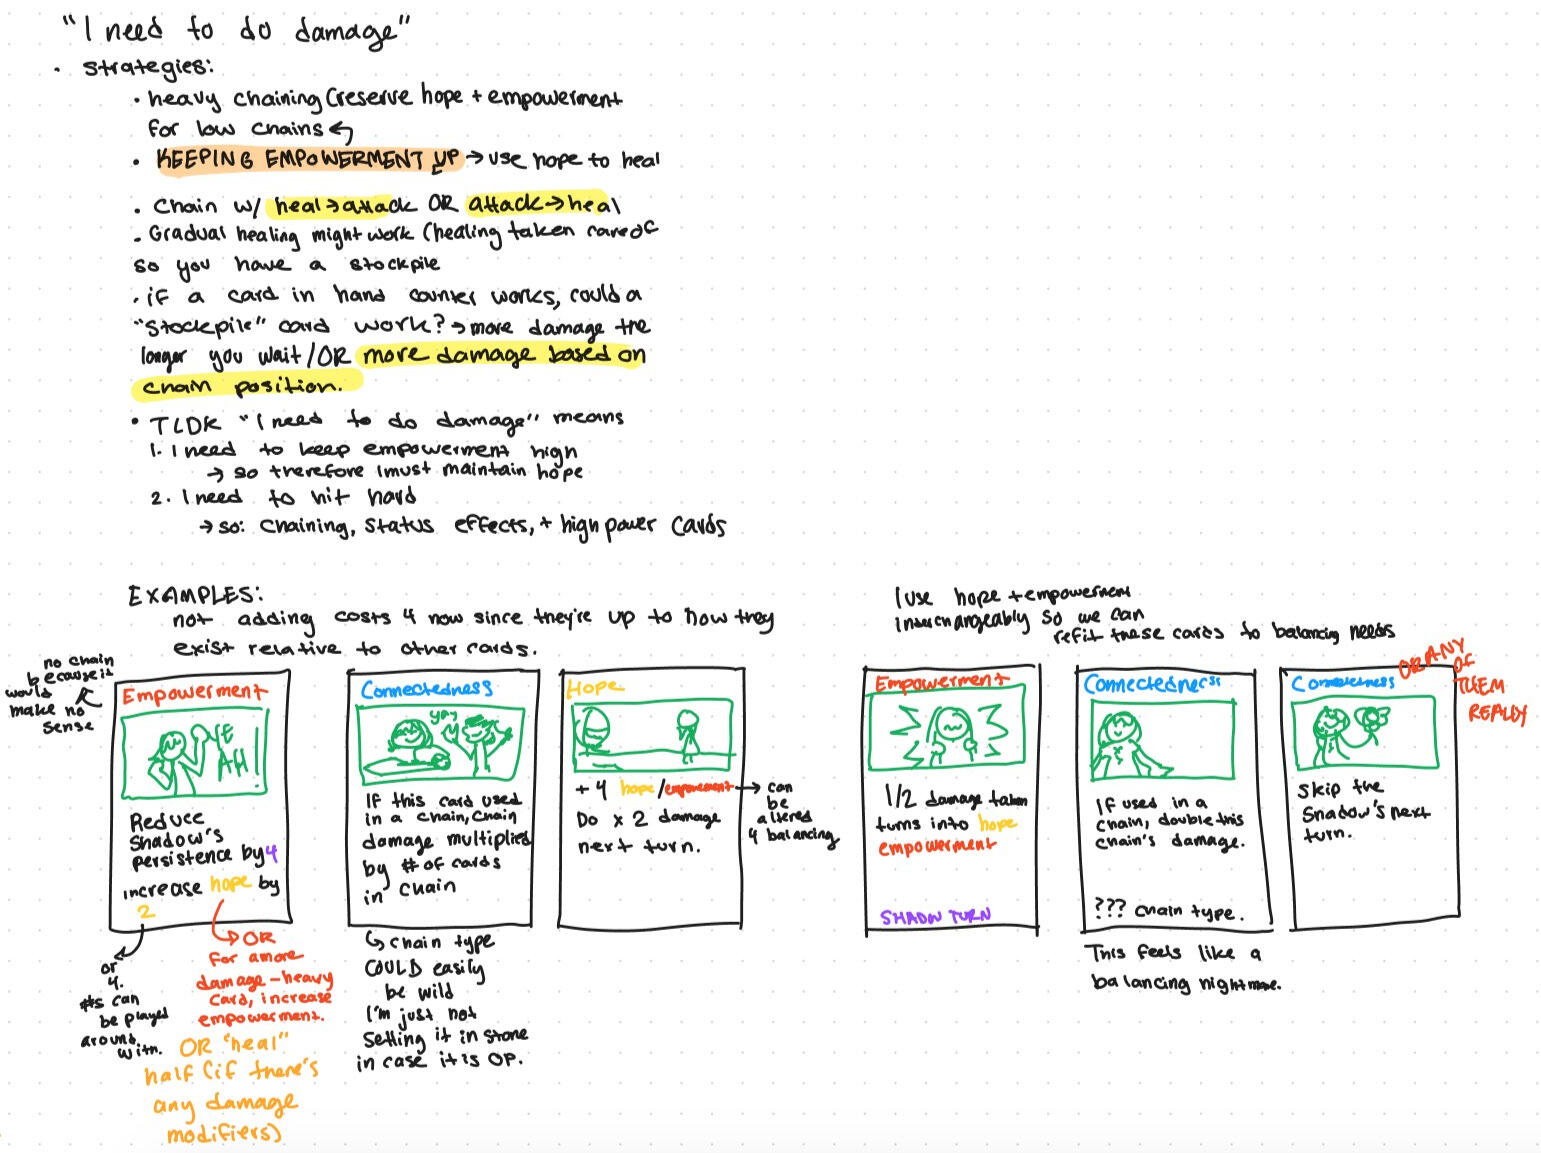 "I need to do damage"
· strategies:
· heavy chaining (reserve hope + empowerment
for low chains
· KEEPING EMPOWERMENT UP → use hope to heal
· Chain w/ heal → attack OR attack → heal
· Gradual healing might work (healing taken care of
so you have a stockpile
· if a card in hand counter works, could a
"stockpile" card work? → more damage the
longer you wait / OR more damage based on
chain position.
· TLDR "I need to do damage" means
1. I need to keep empowerment high
→ so therefore I must maintain hope
2. I need to hit hard
→ so: chaining, status effects, + high power cards
EXAMPLES:
not adding costs 4 now since they're up to how they
exist relative to other cards.
I use hope + empowerment
interchangeably so we can
refit these cards to balancing needs
no chain
because it
would
make no
sense
Empowerment
YEAH!
Reduce
Shadow's
persistence by 4
increase hope by
2
or
4.
#s can
be played
around
with.
OR
for a more
damage-heavy
card, increase
empowerment.
OR "heal"
half (if there's
any damage
modifiers)
Connectedness
yay
If this card used
in a chain, chain
damage multiplied
by # of cards
in chain
chain type
COULD easily
be wild
I'm just not
setting it in stone
in case it is OP.
Hope
+ 4 hope/empowerment → can
be
altered
4 balancing
Do x 2 damage
next turn.
Empowerment
1/2 damage taken
turns into hope
empowerment
SHADOW TURN
Connectedness
If used in a
chain, double this
chain's damage.
??? chain type.
This feels like a
balancing nightmare.
Connectedness
OR ANY
OF
THEM
REALLY
Skip the
Shadow's next
turn.